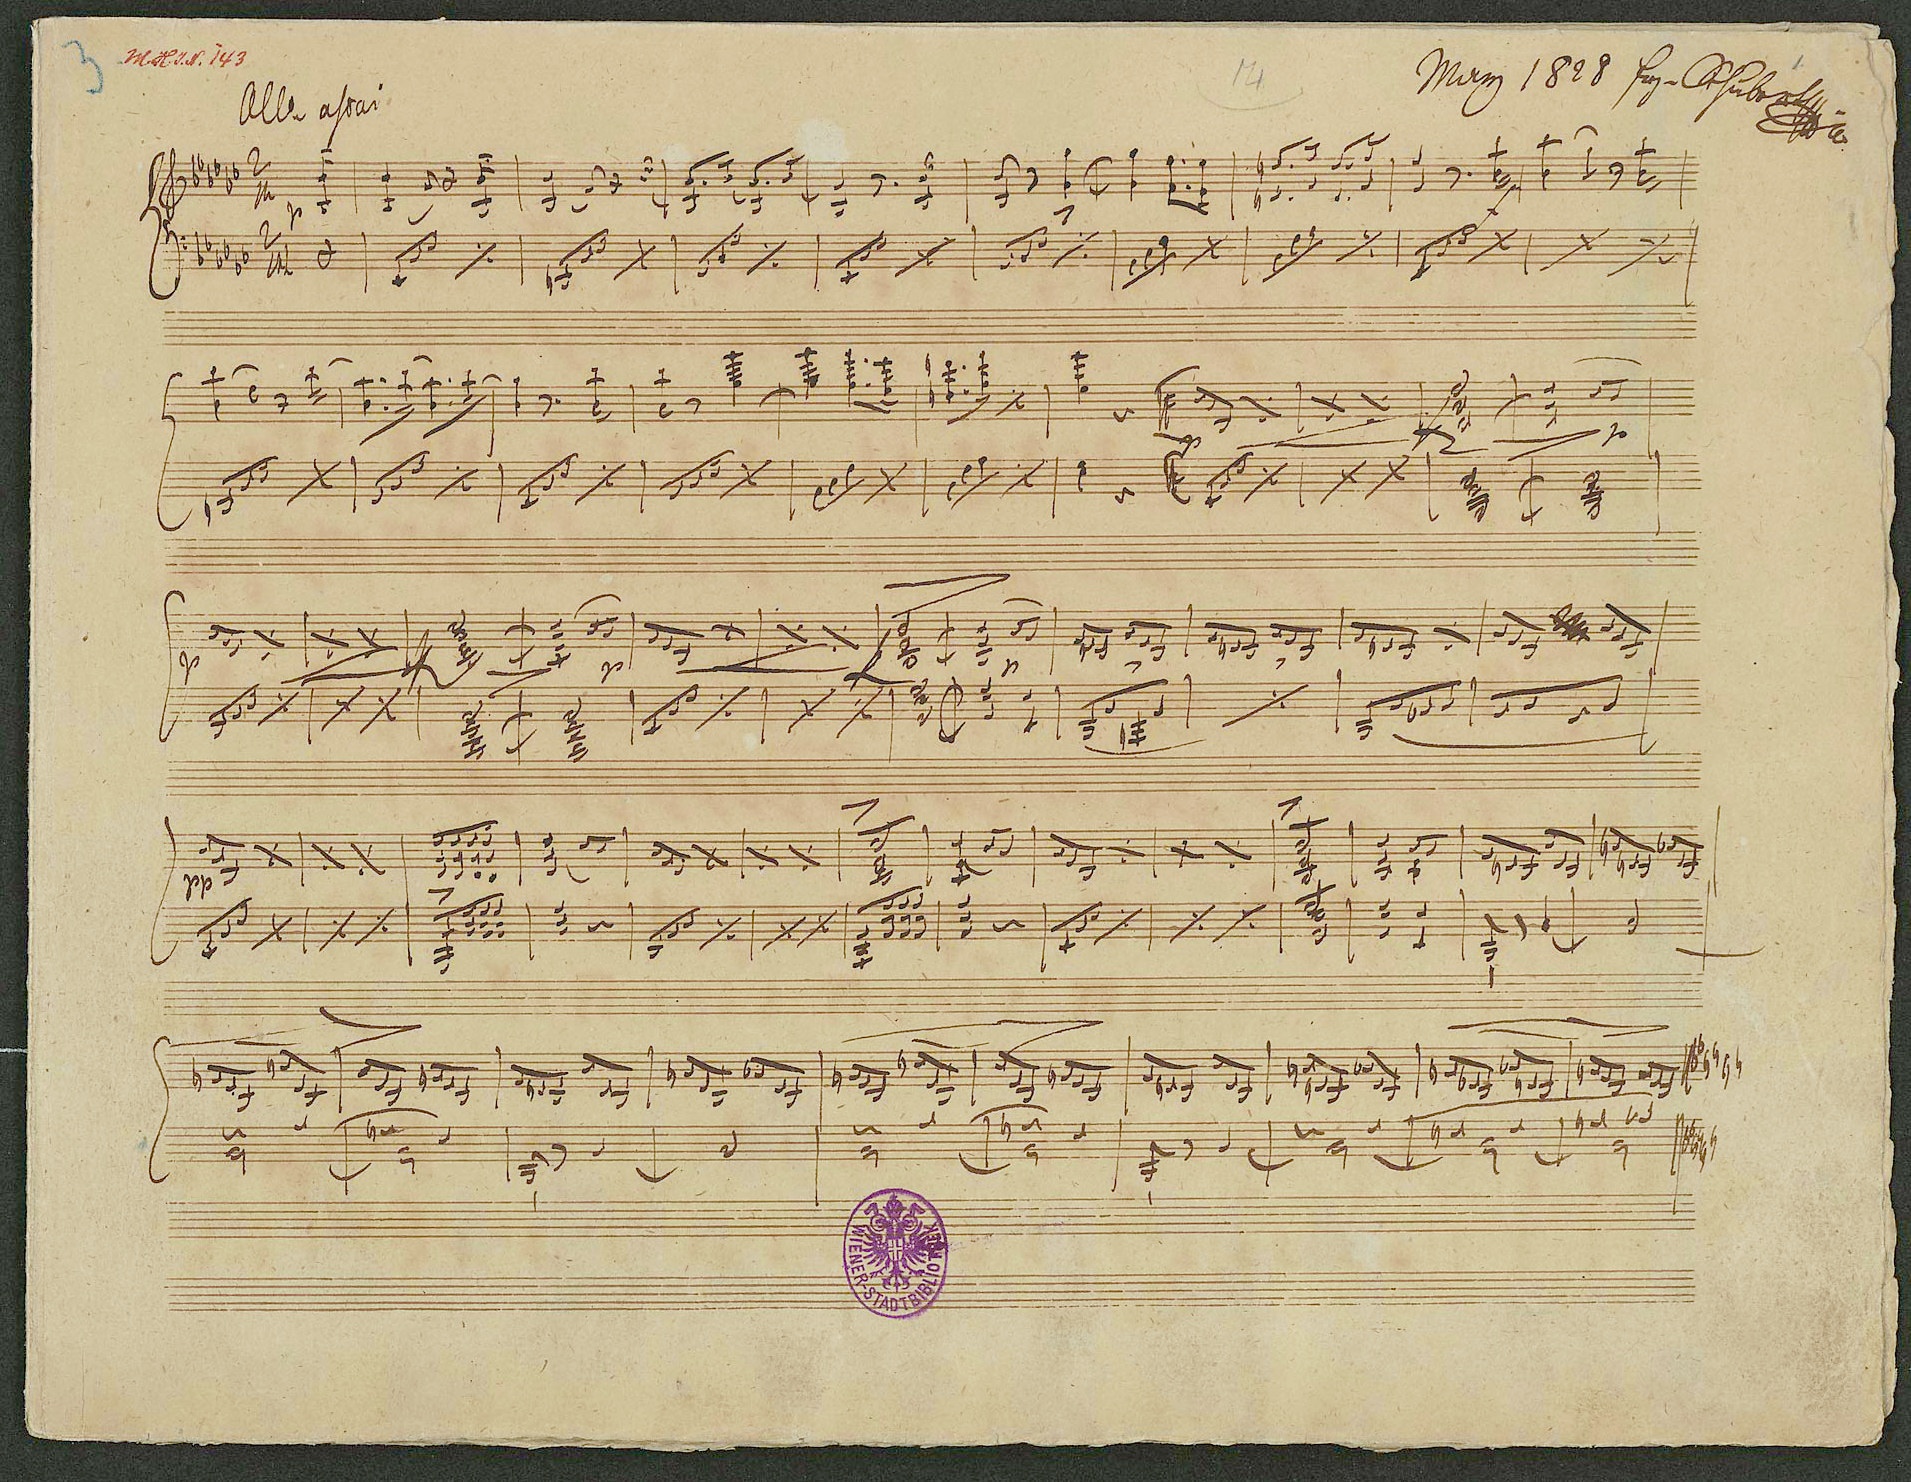 3 M.H.I.N. 143
14
May 1828 Frz. Schubert
Allo assai
2
4
p
2
4
p
p
p
p
p
p
pp
WIENER-STADTBIBLIOTHEK